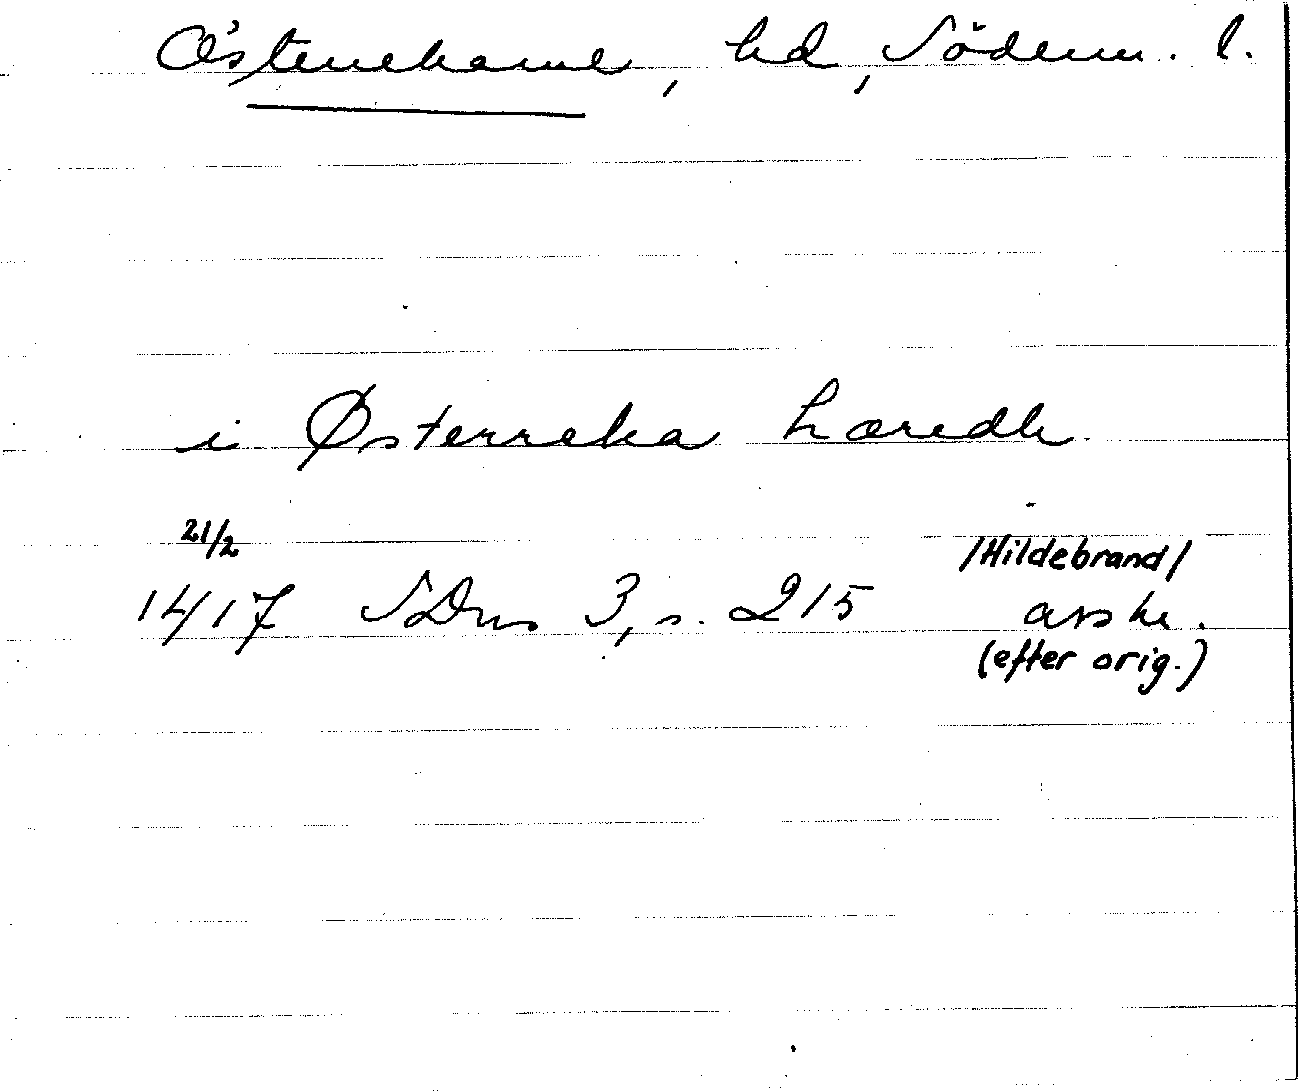 Österrekarne, hd, Söderm. l.
i Østerreka hæredh
21/2
1417 SDns 3, s. 215 /Hildebrand/
avskr.
(efter orig.)